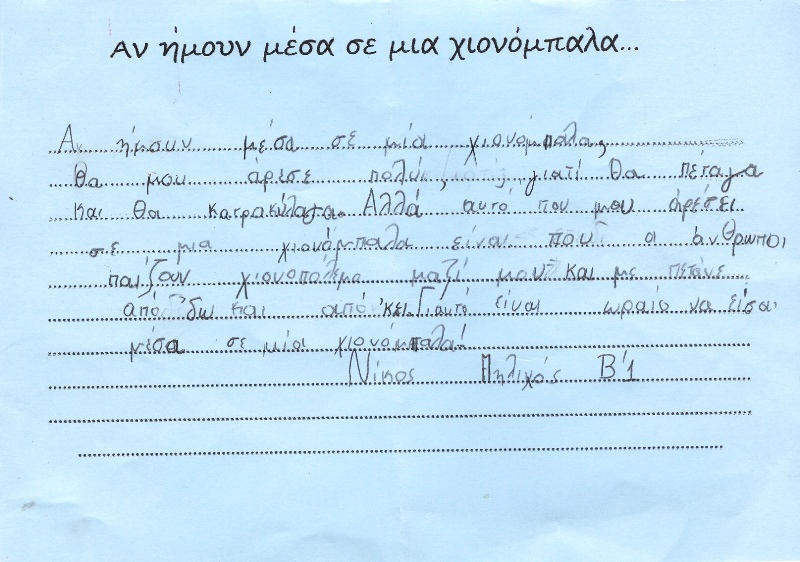 Αν ήμουν μέσα σε μια χιονόμπαλα...
Αν ήμουν μέσα σε μία χιονόμπαλα,
θα μου άρεσε πολύ, γιατί θα πέταγα
και θα κατρακύλαγα. Αλλά αυτό που μου αρέσει
σε μια χιονόμπαλα είναι που οι άνθρωποι
παίζουν χιονοπόλεμο μαζί μου και με πετάνε
από δω και από 'κει. Γι'αυτό είναι ωραίο να είσαι
μέσα σε μία χιονόμπαλα!
Νίκος Πηλιχός Β'1